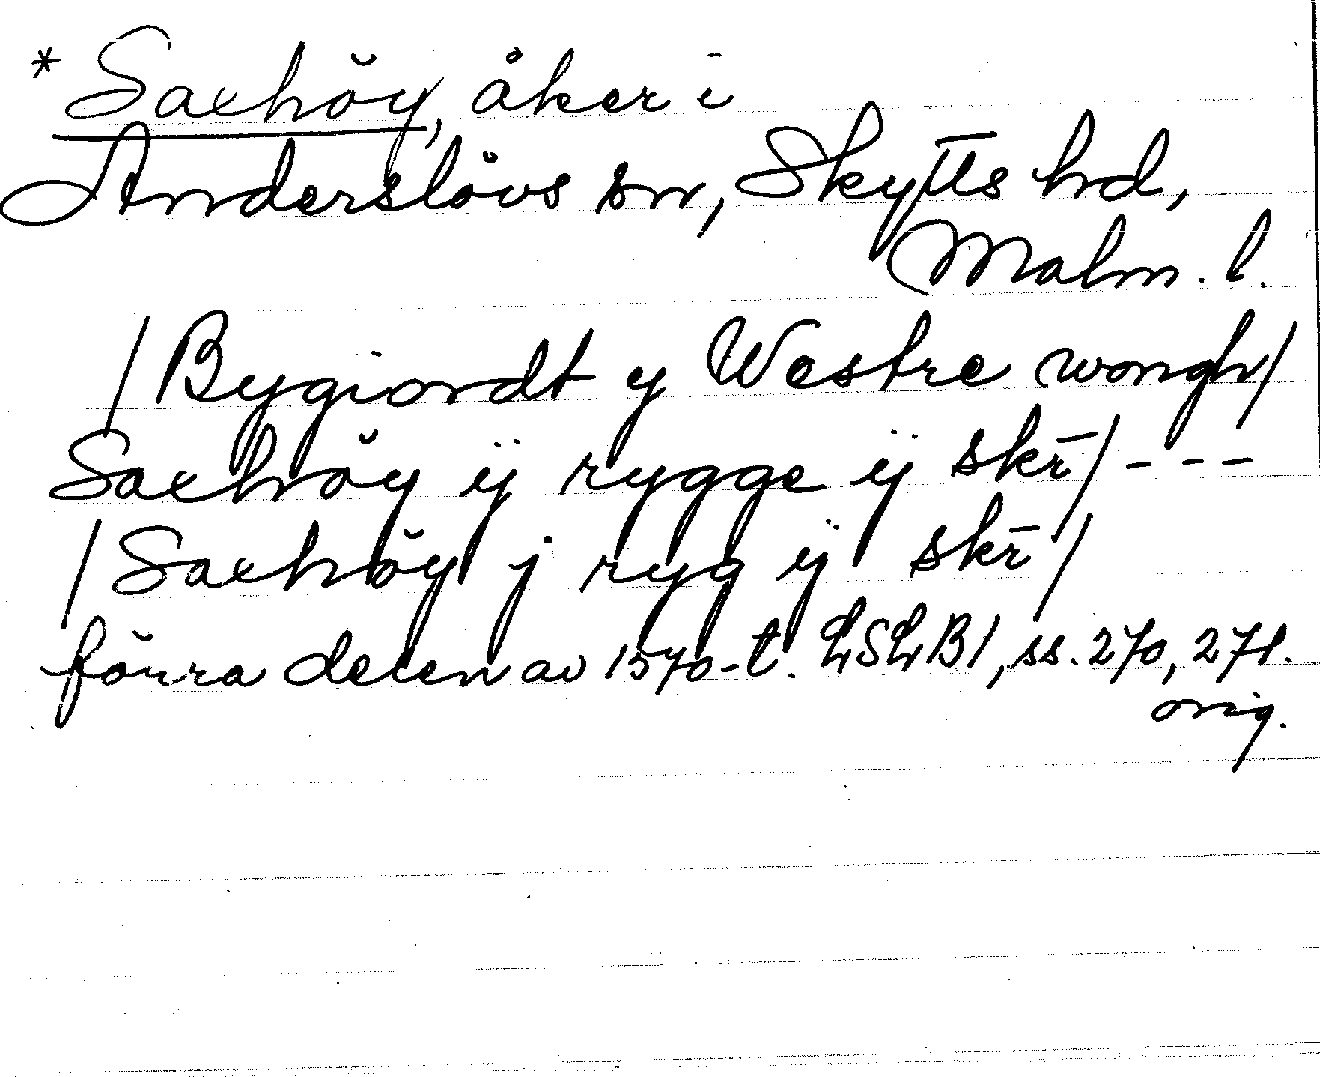 * Saxhöy, åker i
Anderslövs sn, Skytts hd,
Malm. l.
/Bygiordt y Westre wongh/
Saxhöy ij rygge ij skr̄/ ---
/Saxhöy j ryg ij skr̄/
förra delen av 1570-t. LSLB1, ss. 270, 271.
orig.